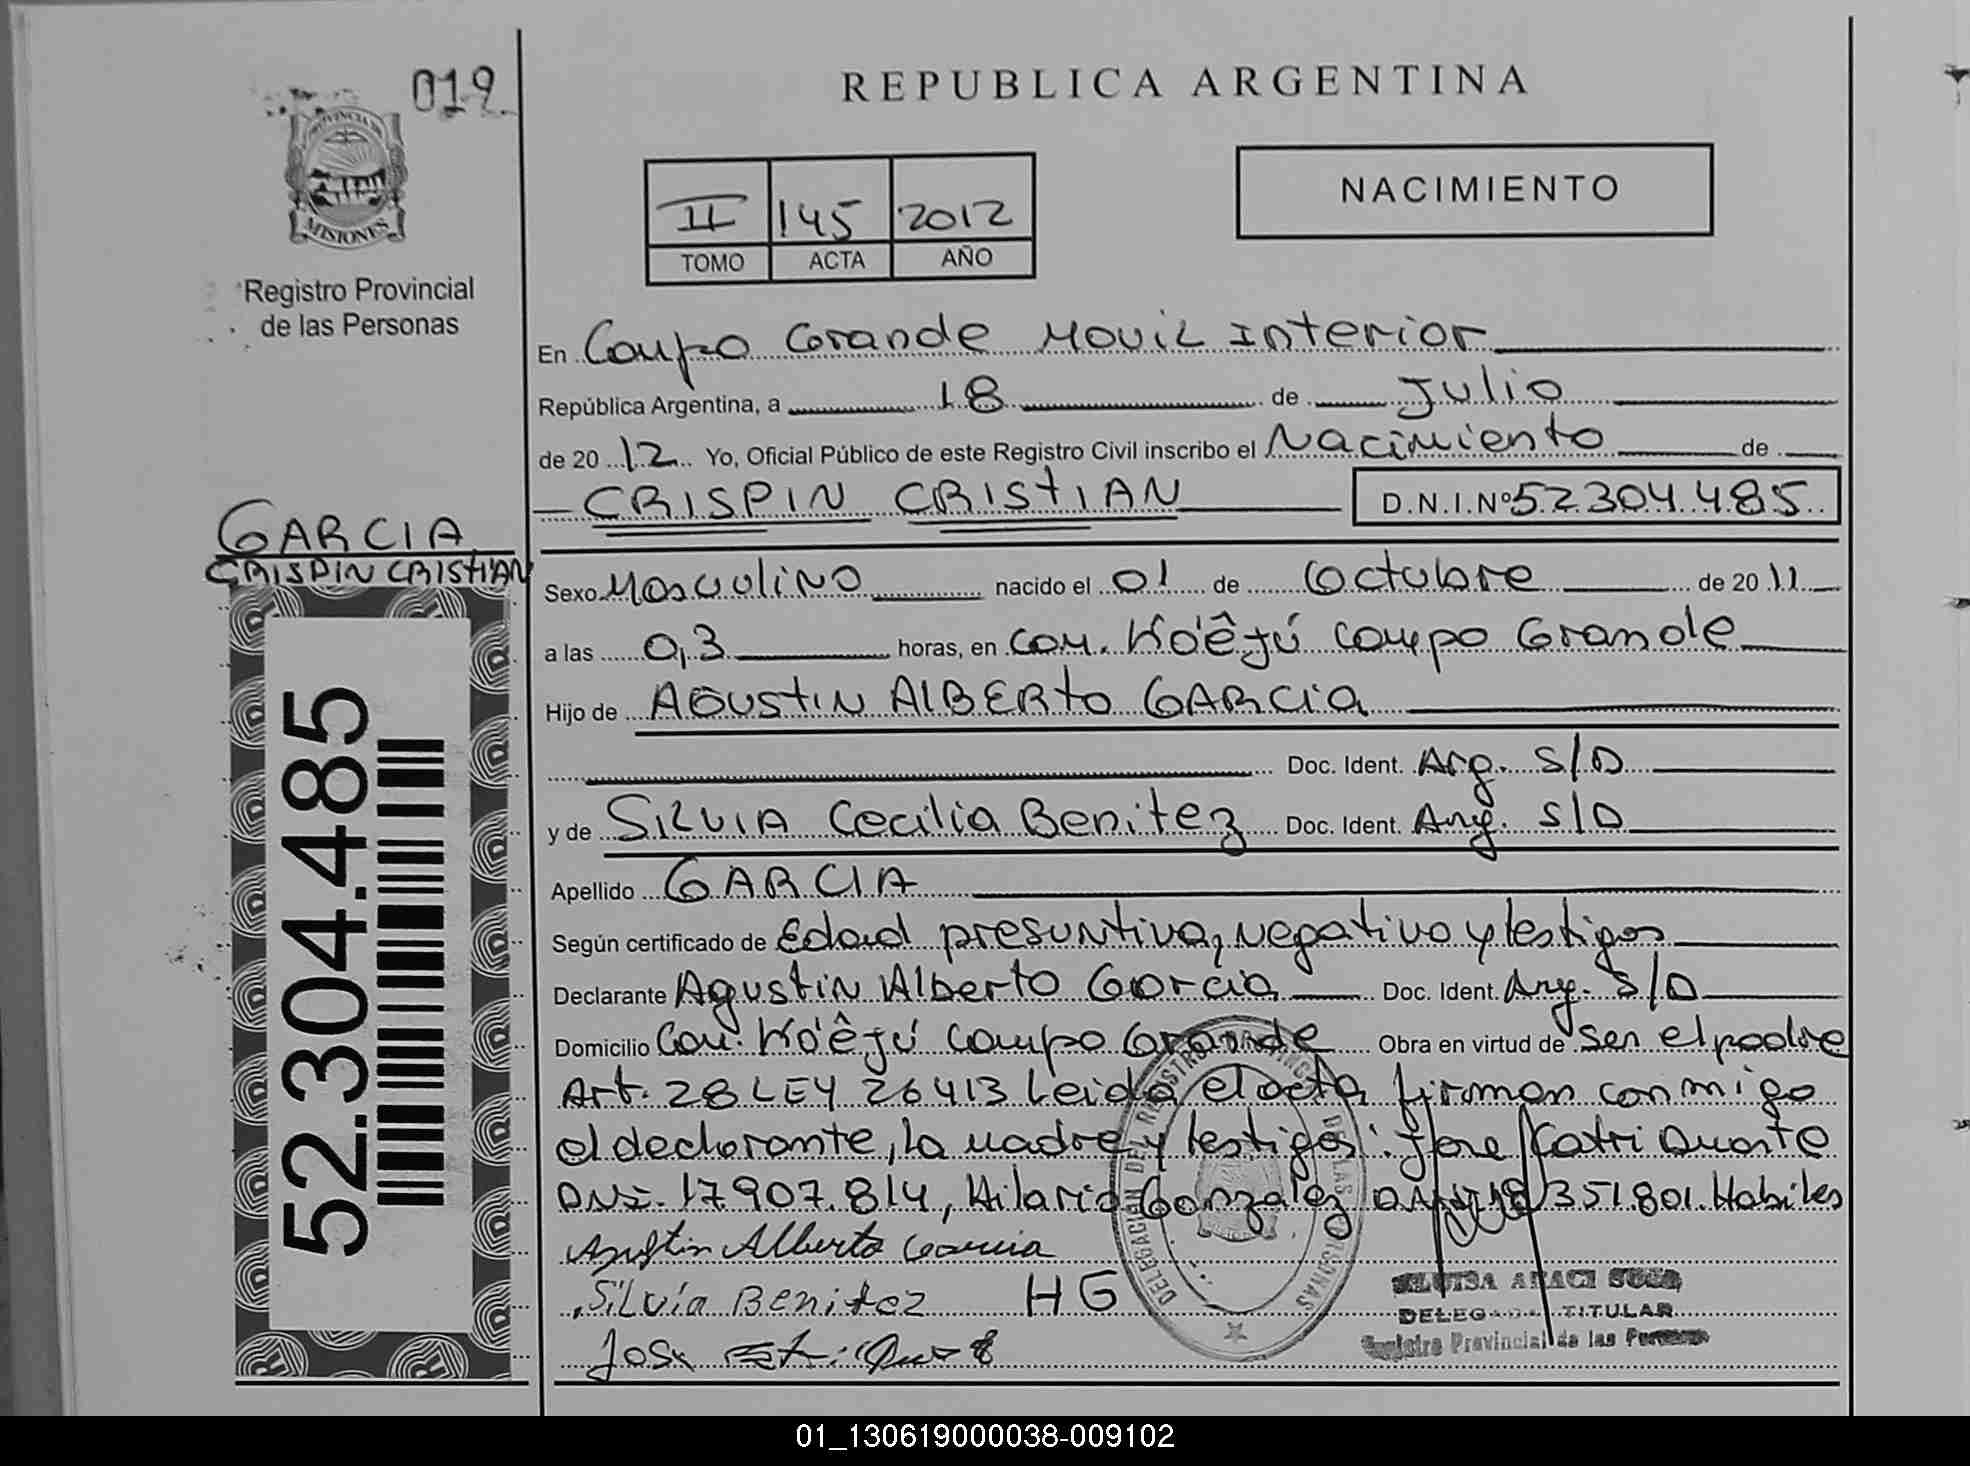 019
PROVINCIA DE
MISIONES
Registro Provincial
de las Personas
REPUBLICA ARGENTINA
II 145 2012
TOMO ACTA AÑO
NACIMIENTO
En Campo Grande Movil Interior
República Argentina, a 18 de Julio
de 2012 Yo, Oficial Público de este Registro Civil inscribo el Nacimiento de
CRISPIN CRISTIAN D.N.I.Nº 52304.485
GARCIA
CRISPIN CRISTIAN
52.304.485
Sexo Masculino nacido el 01 de Octubre de 2011
a las 0,3 horas, en Com. Ko'êjú Campo Grande
Hijo de AGUSTIN ALBERTO GARCIA
Doc. Ident. Arg. S/D
y de SILVIA Cecilia Benitez Doc. Ident. Arg. S/D
Apellido GARCIA
Según certificado de Edad presuntiva, negativo y testigos
Declarante Agustin Alberto Garcia Doc. Ident. Arg. S/D
Domicilio Com. Ko'êjú Campo Grande Obra en virtud de ser el padre
Art. 28 LEY 26413 Leida el acta firman conmigo
el declarante, la madre y testigos: Jose Catri Duarte
DNI. 17907.814, Hilario Gonzalez 351.801. Habiles
Agustin Alberto Garcia
Silvia Benitez HG
DELEGACION DEL REGISTRO DE LAS PERSONAS
DELEGADA TITULAR
Registro Provincial de las Personas
01_130619000038-009102